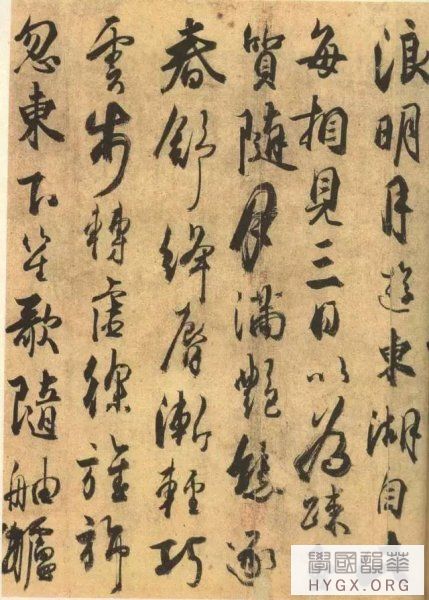 浪明月遊東湖自
每相見三日以為踈
質隨月滿艷態逐
春舒絳脣漸輕巧
雲步轉虛徐旌旆
忽東下笙歌隨舳艫
華韻國學
HYGX.ORG